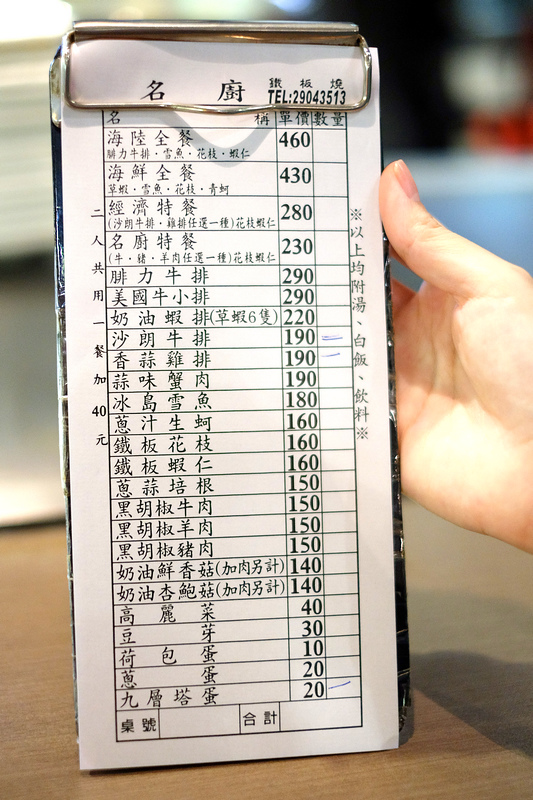 名廚 鐵板燒
TEL:29043513
名稱 單價 數量
海陸全餐 460
腓力牛排・雪魚・花枝・蝦仁
海鮮全餐 430
草蝦・雪魚・花枝・青蚵
經濟特餐 280
(沙朗牛排・雞排任選一種)花枝蝦仁
名廚特餐 230
(牛・豬・羊肉任選一種)花枝蝦仁
腓力牛排 290
美國牛小排 290
奶油蝦排(草蝦6隻) 220
沙朗牛排 190
香蒜雞排 190
蒜味蟹肉 190
冰島雪魚 180
蔥汁生蚵 160
鐵板花枝 160
鐵板蝦仁 160
蔥蒜培根 150
黑胡椒牛肉 150
黑胡椒羊肉 150
黑胡椒豬肉 150
奶油鮮香菇(加肉另計) 140
奶油杏鮑菇(加肉另計) 140
高麗菜 40
豆芽 30
荷包蛋 10
蔥蛋 20
九層塔蛋 20
桌號 合計
二人共用一餐加40元
※以上均附湯、白飯、飲料※